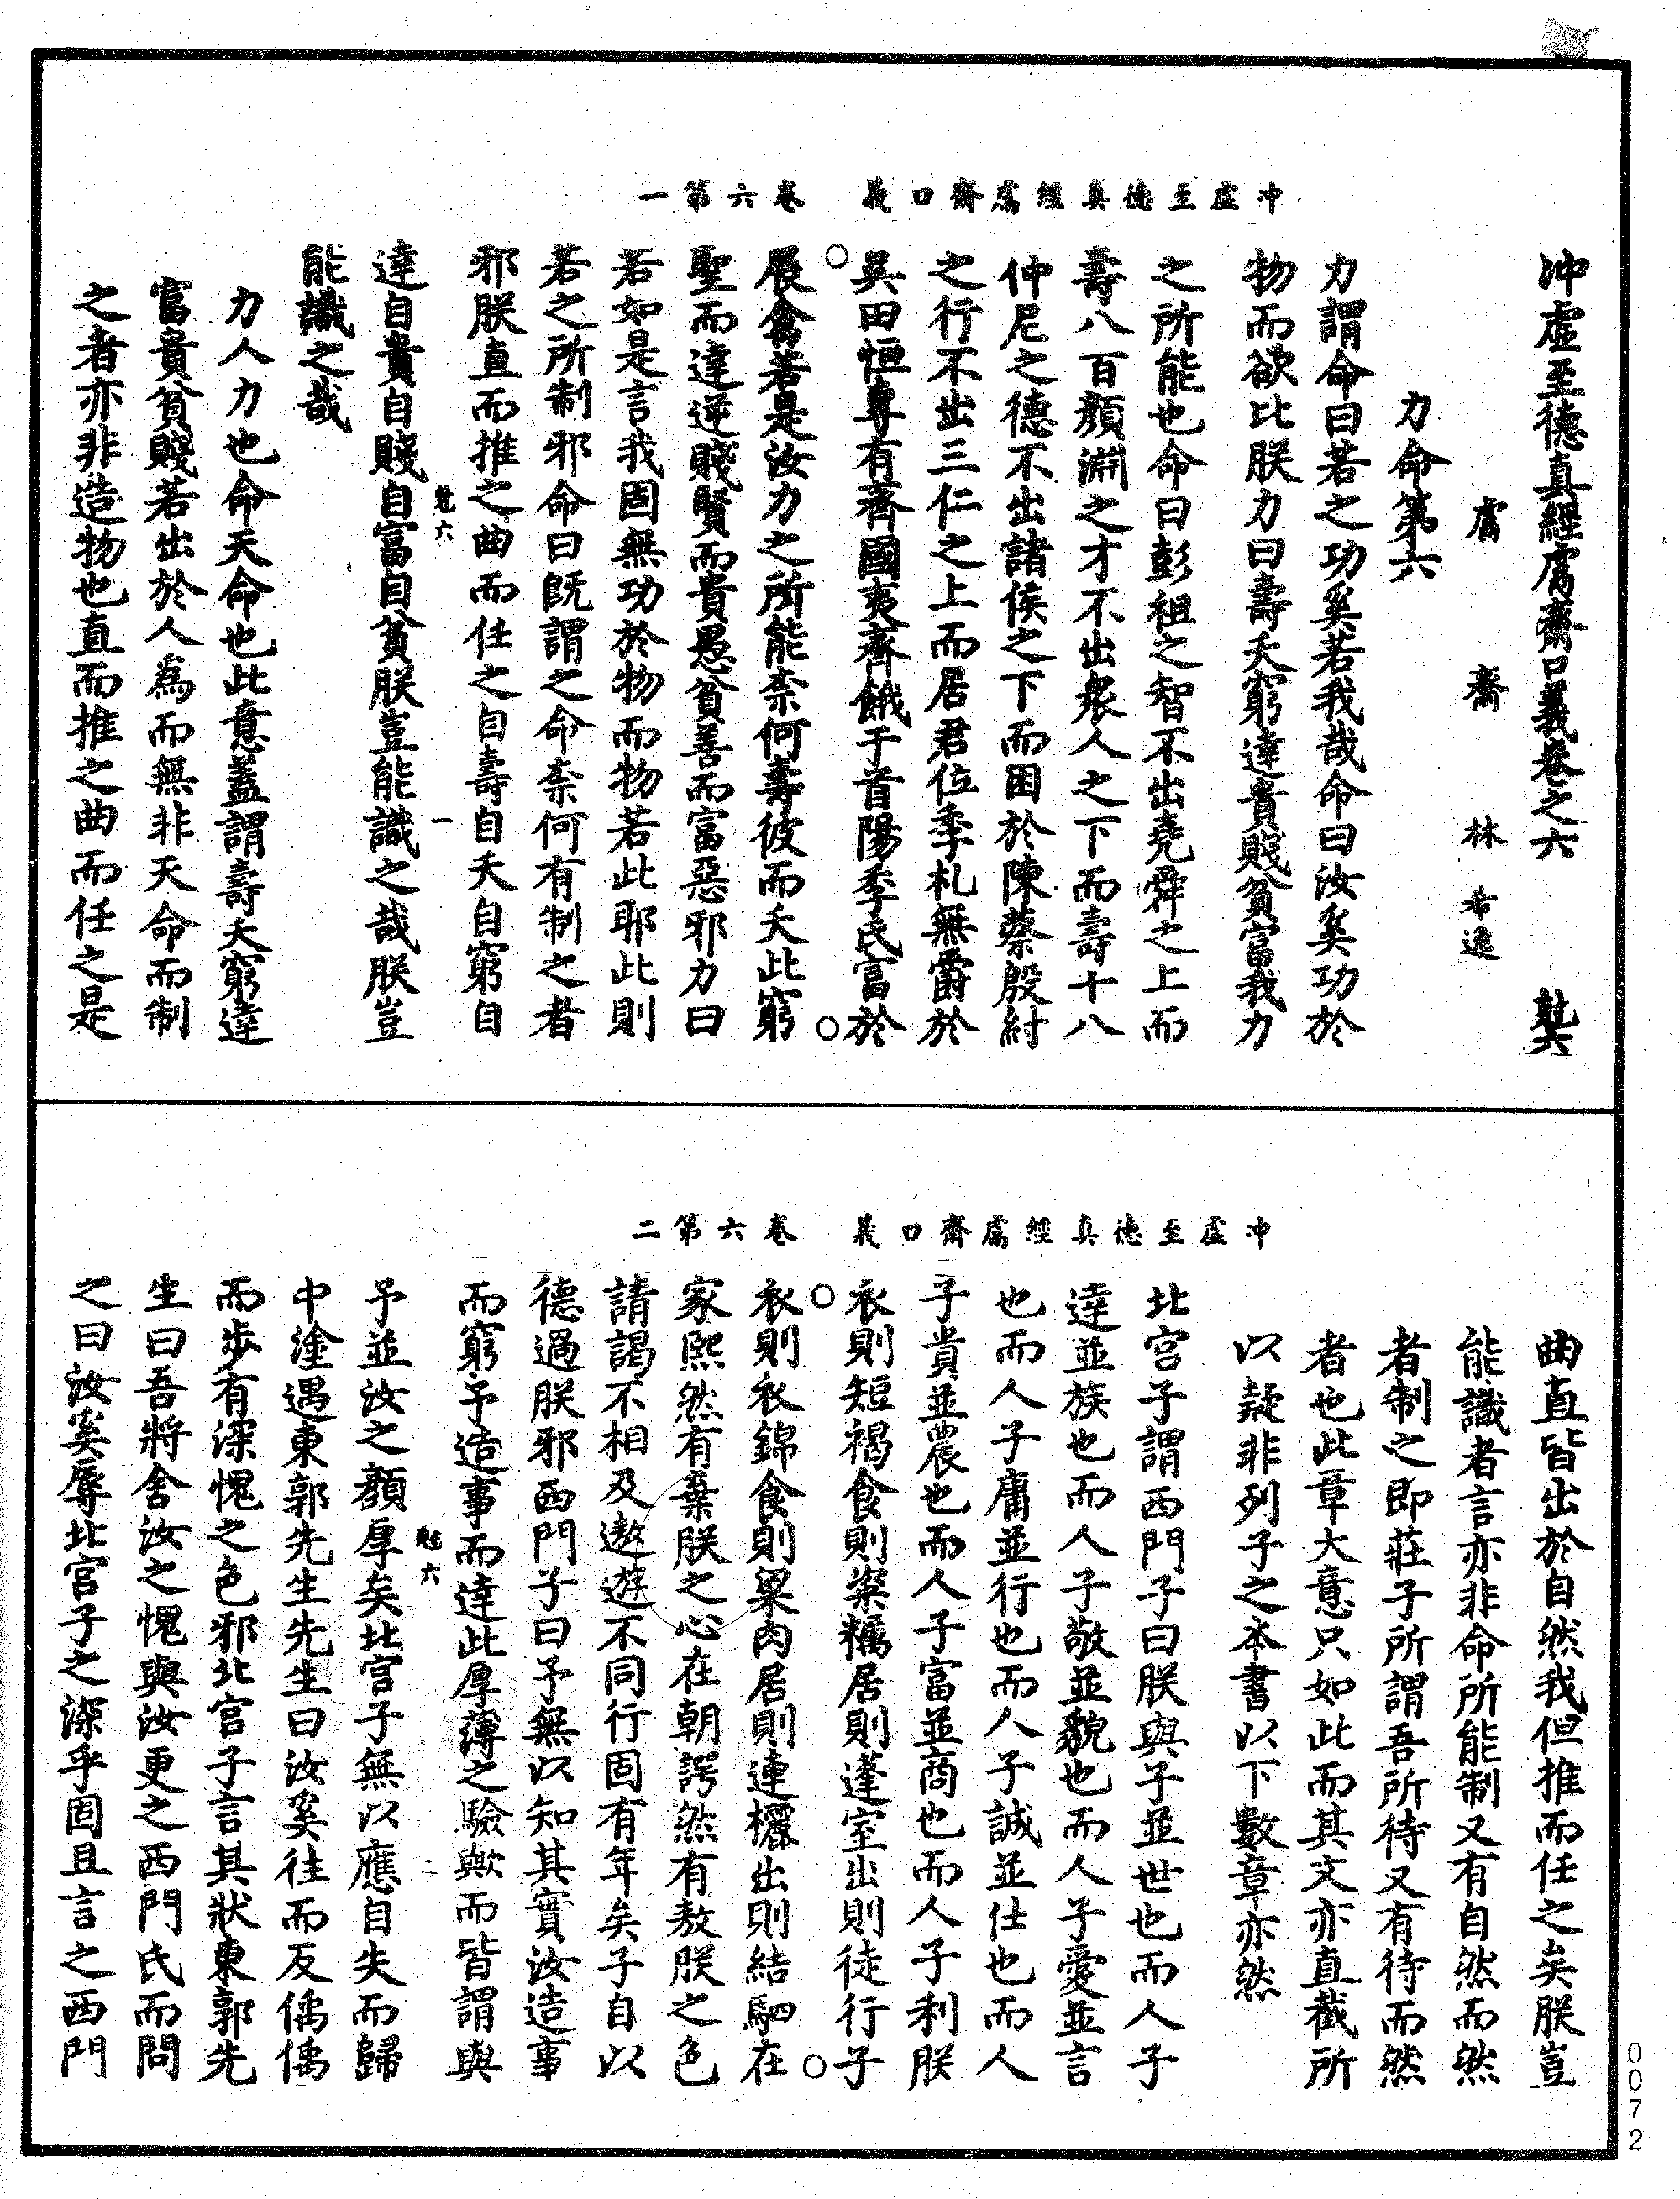 冲虛至德真經鬳齋口義卷六第一
冲虛至德真經鬳齋口義卷之六
鬳齋林希逸
力命第六
力謂命曰若之功奚若我哉命曰汝奚功於
物而欲比朕力曰壽夭窮達貴賤貧富我力
之所能也命曰彭祖之智不出堯舜之上而
壽八百顏淵之才不出衆人之下而壽十八
仲尼之德不出諸侯之下而困於陳蔡殷紂
之行不出三仁之上而居君位季札無爵於
吳田恒專有齊國夷齊餓于首陽季氏富於
展禽若是汝力之所能柰何壽彼而夭此窮
聖而達逆賤賢而貴愚貧善而富惡邪力曰
若如是言我固無功於物而物若此耶此則
若之所制邪命曰既謂之命柰何有制之者
邪朕直而推之曲而任之自壽自夭自窮自
六
一
達自貴自賤自富自貧朕豈能識之哉朕豈
能識之哉
力人力也命天命也此意蓋謂壽夭窮達
富貴貧賤若出於人為而無非天命而制
之者亦非造物也直而推之曲而任之是
冲虛至德真經鬳齋口義卷六第二
曲直皆出於自然我但推而任之矣朕豈
能識者言亦非命所能制又有自然而然
者制之即莊子所謂吾所待又有待而然
者也此章大意只如此而其文亦直截所
以疑非列子之本書以下數章亦然
北宮子謂西門子曰朕與子並世也而人子
達並族也而人子敬並貌也而人子愛並言
也而人子庸並行也而人子誠並仕也而人
子貴並農也而人子富並商也而人子利朕
衣則短褐食則粢糲居則蓬室出則徒行子
衣則衣錦食則粱肉居則連欐出則結駟在
家熙然有棄朕之心在朝諤然有敖朕之色
請謁不相及遨遊不同行固有年矣子自以
德過朕邪西門子曰予無以知其實汝造事
而窮予造事而達此厚薄之驗歟而皆謂與
六
二
予並汝之顏厚矣北宮子無以應自失而歸
中塗遇東郭先生先生曰汝奚往而反偊偊
而步有深愧之色邪北宮子言其狀東郭先
生曰吾將舍汝之愧與汝更之西門氏而問
之曰汝奚辱北宮子之深乎固且言之西門
0072